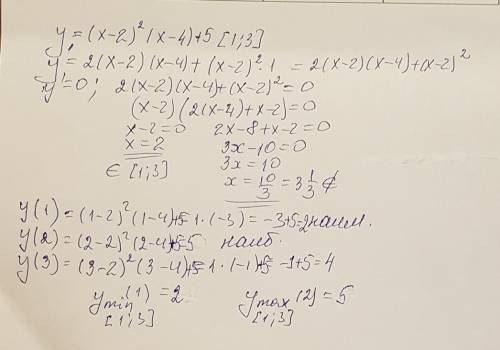 y=(x-2)²(x-4)+5 [1;3]
y'=2(x-2)(x-4)+(x-2)²·1 = 2(x-2)(x-4)+(x-2)²
y'=0; 2(x-2)(x-4)+(x-2)²=0
(x-2)(2(x-4)+x-2)=0
x-2=0 2x-8+x-2=0
x=2 3x-10=0
∈ [1;3] 3x=10
x=10/3=3 1/3 ∉
y(1)=(1-2)²(1-4)+5=1·(-3)=-3+5=2 наим.
y(2)=(2-2)²(2-4)+5=5 наиб.
y(3)=(3-2)²(3-4)+5=1·(-1)+5=-1+5=4
y min (1)=2 y max (2)=5
[1;3] [1;3]